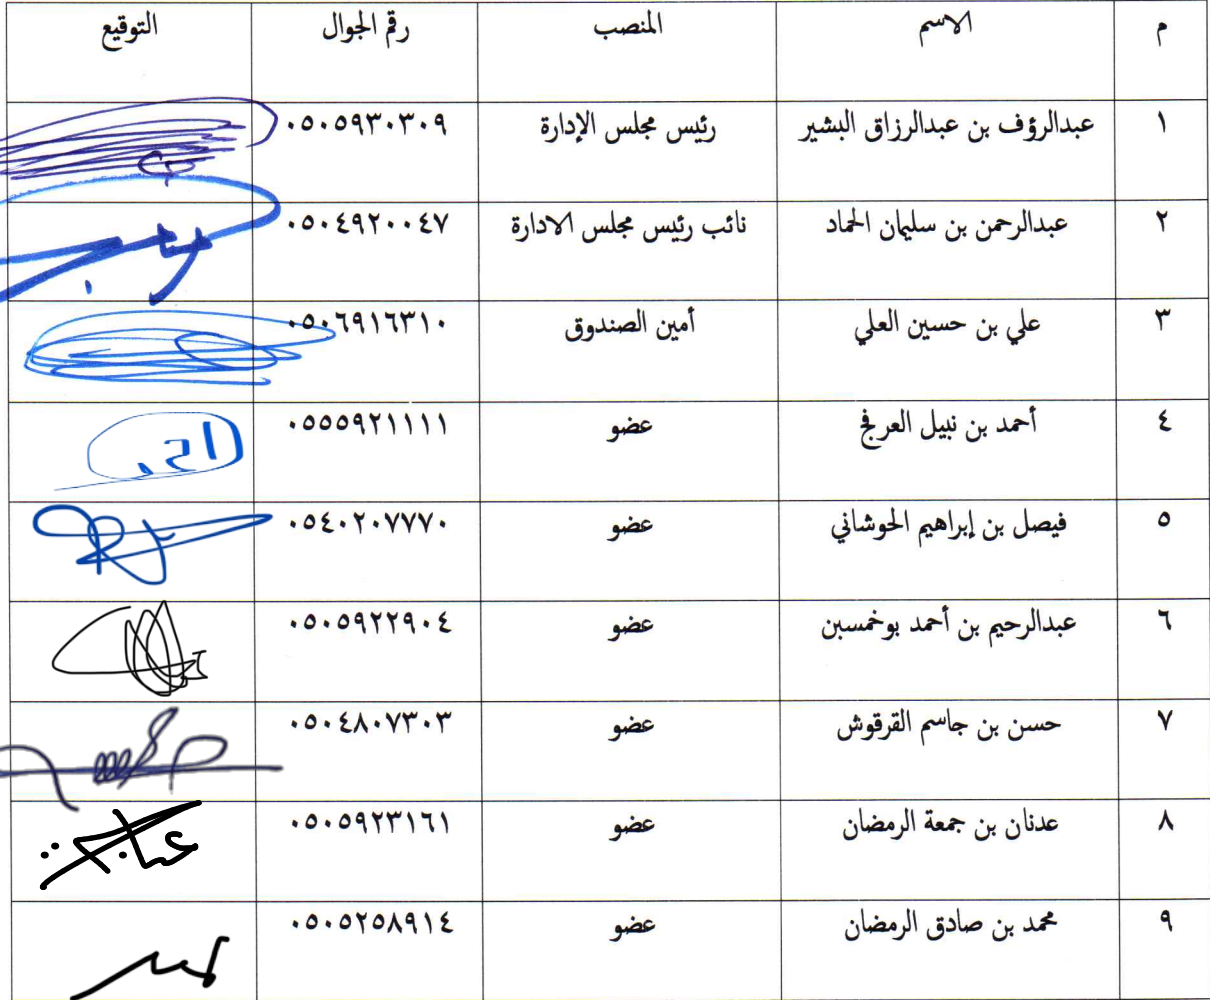 م الاسم المنصب رقم الجوال التوقيع
١ عبدالرؤف بن عبدالرزاق البشير رئيس مجلس الإدارة ٠٥٠٥٩٣٠٣٠٩
٢ عبدالرحمن بن سليمان الحماد نائب رئيس مجلس الادارة ٠٥٠٤٩٢٠٠٤٧
٣ علي بن حسين العلي أمين الصندوق ٠٥٠٦٩١٦٣١٠
٤ أحمد بن نبيل العرفج عضو ٠٥٥٥٩٢١١١١
٥ فيصل بن إبراهيم الحوشاني عضو ٠٥٤٠٢٠٧٧٧٠
٦ عبدالرحيم بن أحمد بوخمسين عضو ٠٥٠٥٩٢٢٩٠٤
٧ حسن بن جاسم القرقوش عضو ٠٥٠٤٨٠٧٣٠٣
٨ عدنان بن جمعة الرمضان عضو ٠٥٠٥٩٢٣١٦١
٩ محمد بن صادق الرمضان عضو ٠٥٠٥٢٥٨٩١٤